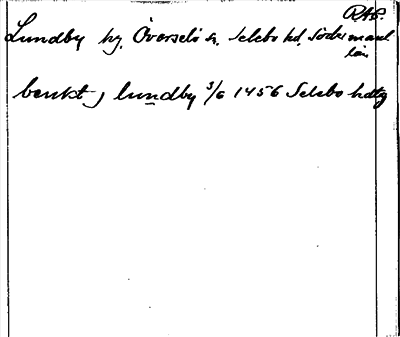 RAP.
Lundby by, Överselö sn, Selebo hd, Södermanl
län
benkt j lundby 3/6 1456 Selebo hdtg